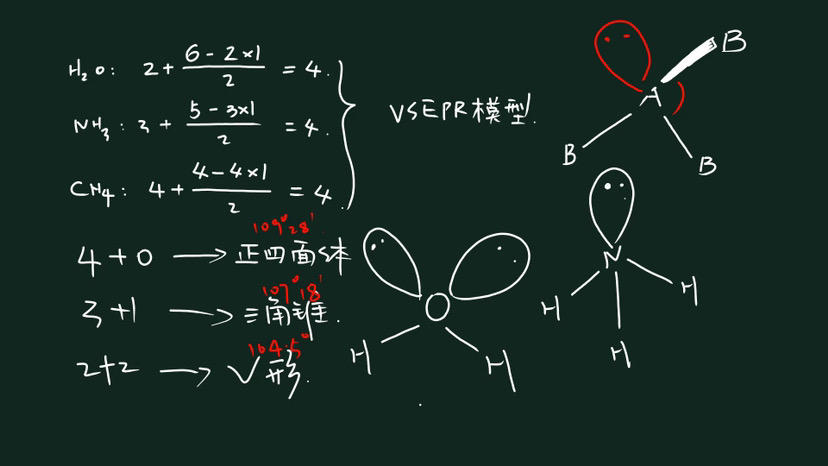 H₂O: 2 + (6 - 2×1)/2 = 4.
NH₃: 3 + (5 - 3×1)/2 = 4.
CH₄: 4 + (4 - 4×1)/2 = 4.
VSEPR模型.
4+0 → 正四面体
109°28'
3+1 → 三角锥.
107°18'
2+2 → V形.
104.5°
A
B
B
B
O
H
H
N
H
H
H